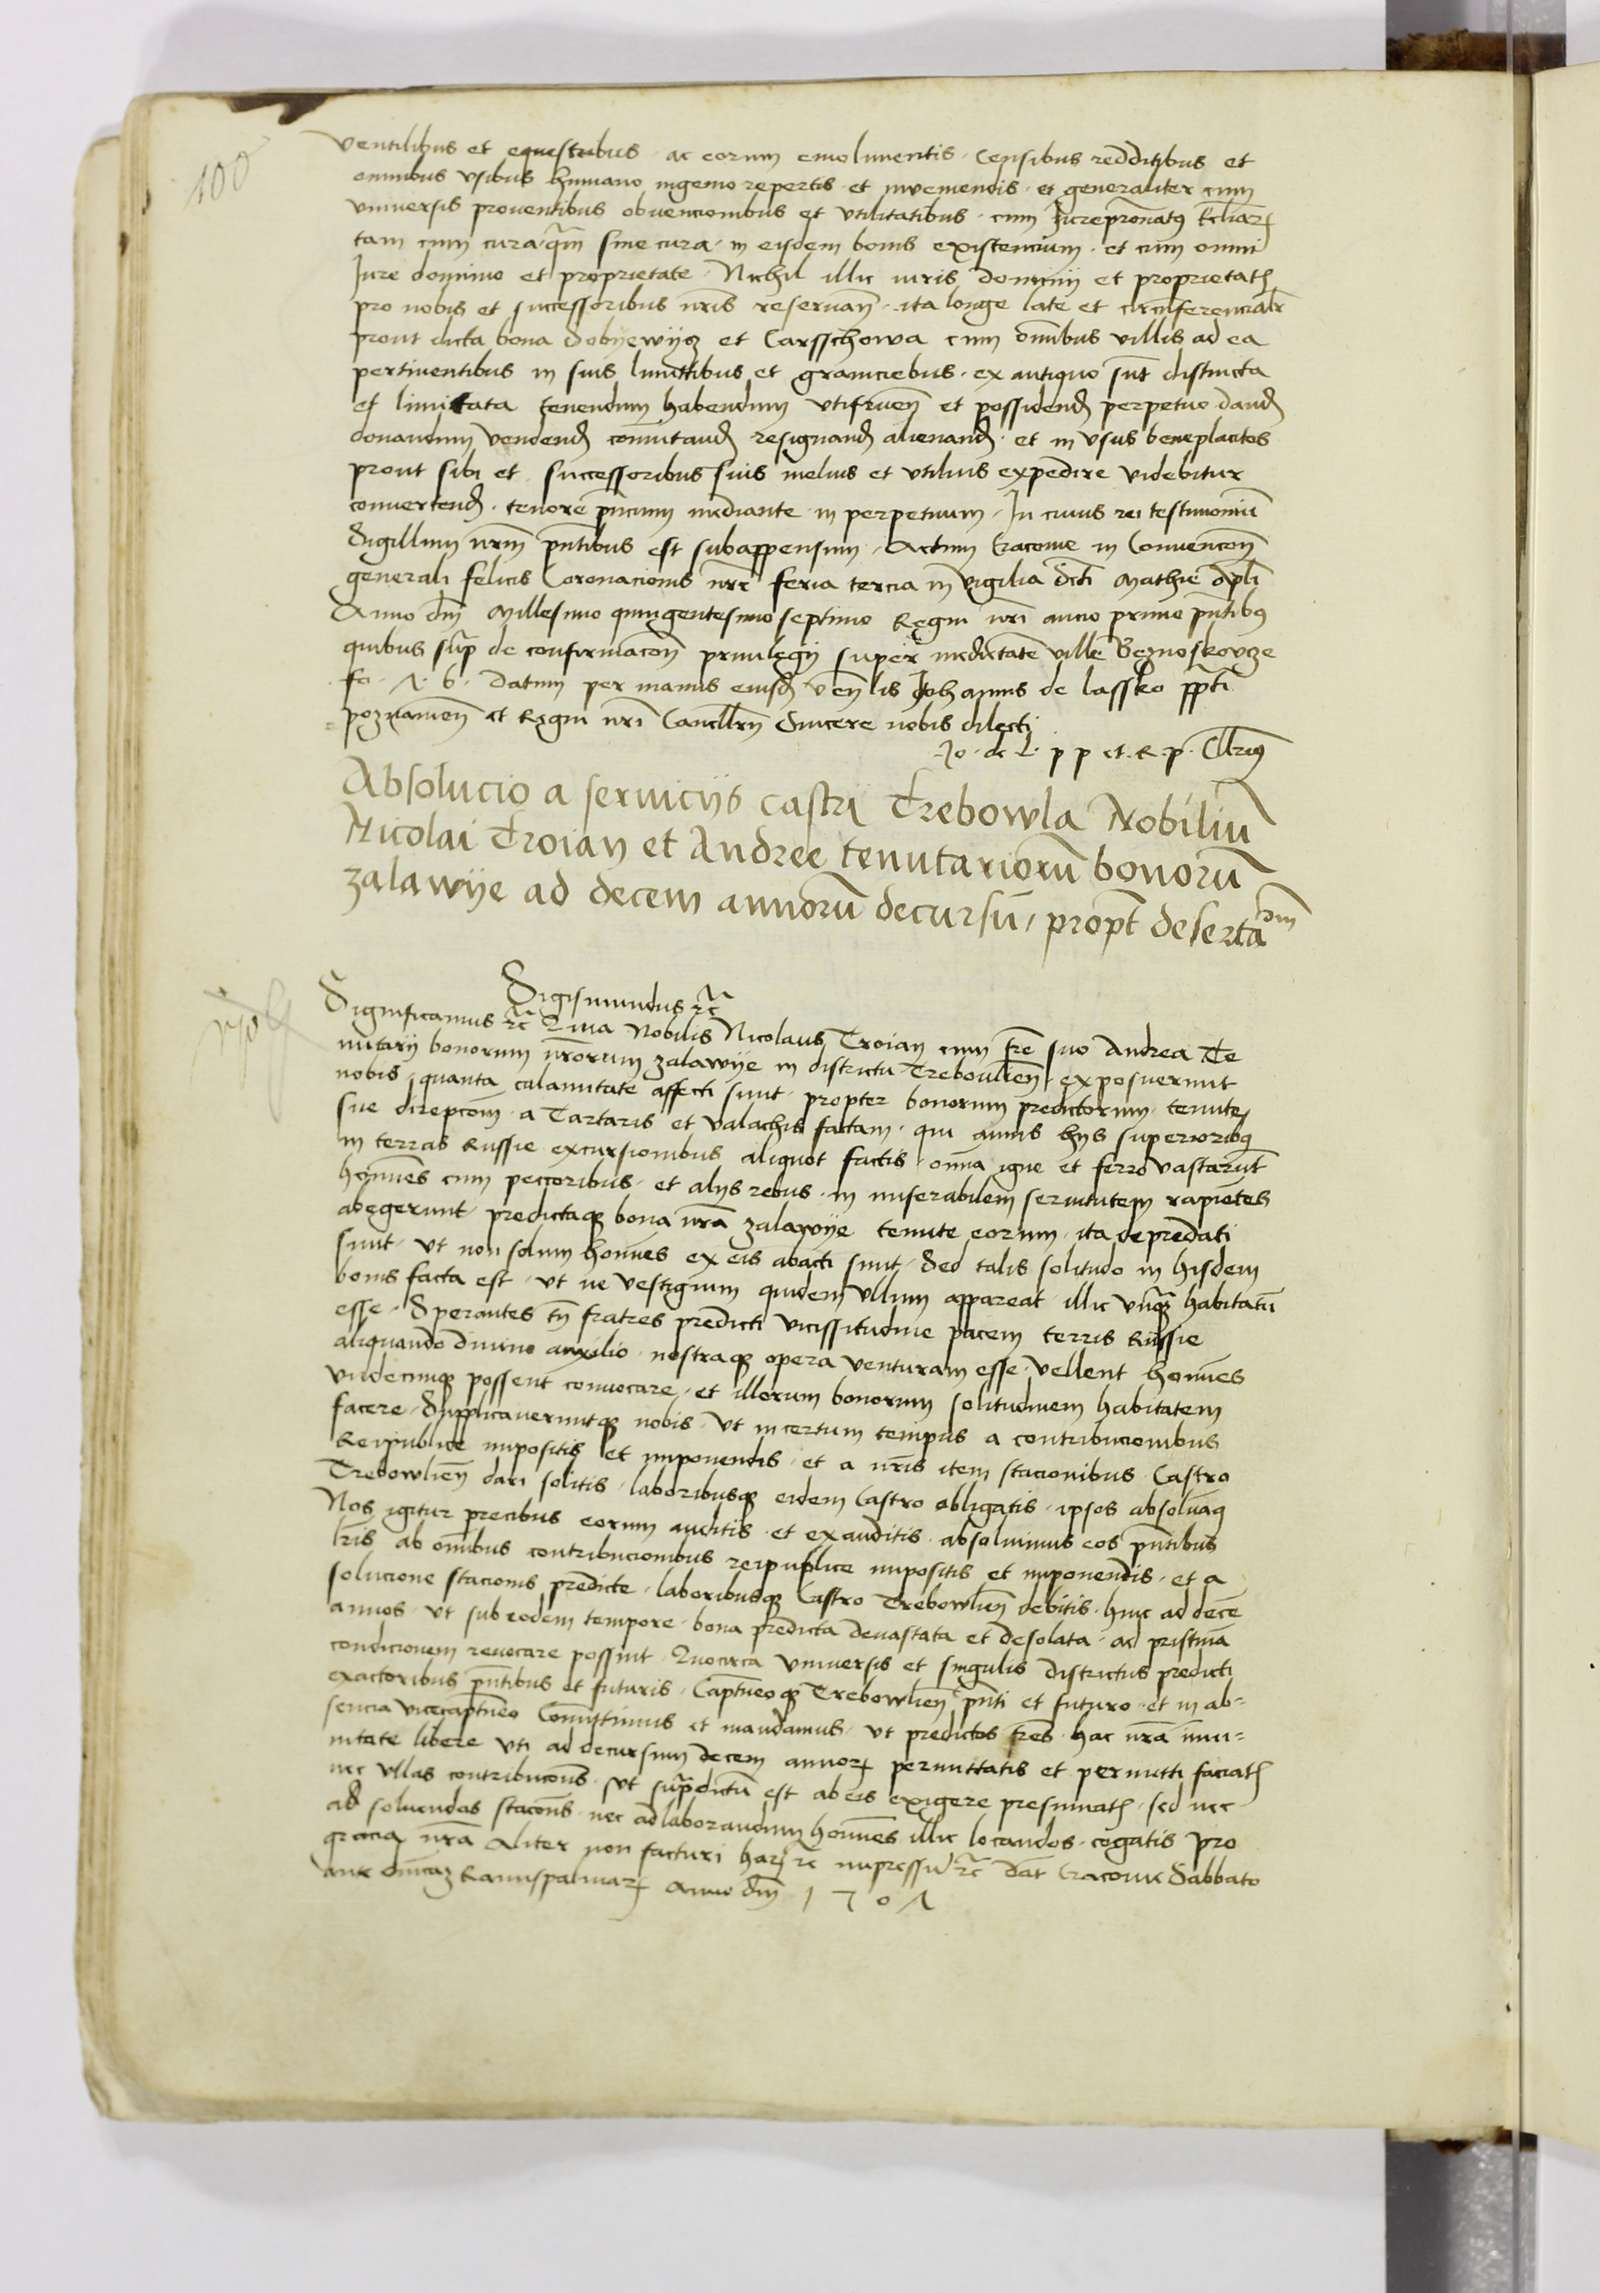 100
ventilibus et equestribus ac eorum emolimentis Censibus redditibus et
omnibus vsibus humano ingenio repertis et inveniendis et generaliter cum
vniuersis prouentibus obuencionibus et vtilitatibus cum Jurepronatus Eccliarz
tam cum cura q̄m sine cura in eisdem bonis existencium et cum omni
Jure dominio et proprietate Nichil illic iuris dominij et proprietatꝭ
pro nobis et successoribus nr̄is reseruan̄ ita longe late et circūferencialr̄
prout dicta bona Dobyewijcz et Carsschowa cum om̄ibus villis ad ea
pertinentibus in suis limittibus et graniciebus ex antiquo sūt distincta
et limittata tenendum habendum vtifruen̄ et possidend̄ perpetuo dand̄
donandum vendend̄ com̄utand̄ resignand̄ alienand̄ et in vsus beneplacitos
prout sibi et successoribus suis melius et vtilius expedire videbitur
conuertend̄ tenore pn̄cium mediante in perpetuum In cuius rei testimoniū
Sigillum nr̄m pn̄tibus est subappensum Actum Cracouie in Conuencōn̄
generali felicis Coronacionis nr̄e feria tercia in vigilia Scti Mathie Apl̄i
Anno dm̄ Millesimo quingentesimo septimo Regni nr̄i anno primo pn̄tibus
quibus sup̄ de confirmacōn̄ priuilegij super medietatē ville Beznoskovcze
fo 7 6 Datum per manus eiusd̄ ven̄lis Johannis de lassko pp̄ti
poznanien̄ et Regni nr̄i Cancllrij Sincere nobis dilecti
Jo de L p p et R p Cllrius
Absolucio a seruicijs castri Trebowla Nobiliū
Nicolai Troian et Andree tenutariorū bonorū
zalawije ad decem annorū decursū, propt̄ desertacōm
Sigismundus rc̄
Significamus rc̄ Quia Nobilis Nicolaus Troian cum fr̄e suo Andrea Te
nutarij bonorum nr̄orum zalawije in districtu Trebowlien̄ exposuerunt
nobis quanta calamitate affecti sunt propter bonorum predictorum tenute
sue direpcōm a Tartaris et valachis factam qui annis hijs superioribq
in terras Russie excursionibus aliquot factis om̄ia igne et ferro vastarūt
hom̄es cum peccoribus et alijs rebus in miserabilem seruitutem rapiētes
abegerunt predictaqꝫ bona nr̄a zalawije tenute eorum ita depredati
sunt vt non solum hom̄es ex eis abacti sunt Sed talis solitudo in hisdem
bonis facta est vt ne vestigium quidem vllum appareat illic vn̄qꝫ habitatū
esse Sperantes tn̄ fratres predicti vicissitudine pacem terris Russie
aliquando diuino auxilio nostraqꝫ opera venturam esse vellent hom̄es
vndecumqꝫ possent conuocare et illorum bonorum solitudinem habitatem
facere Supplicaueruntqꝫ nobis vt in certum tempus a contribucionibus
Reipublice impositis et imponendis et a nr̄is item stacionibus Castro
Trebowlien̄ dari solitis laboribusqꝫ eidem Castro obligatis ipsos absoluāq
Nos igitur precibus eorum auditis et exauditis absoluimus eos pn̄tibus
lr̄is ab om̄ibus contribucionibus reipublice impositis et imponendis et a
solucione stacionis predicte laboribusqꝫ Castro Trebowlien̄ debitis hinc ad decē
annos vt sub eodem tempore bona predicta deuastata et desolata ad pristinā
condicionem reuocare possint Quocirca vniuersis et singulis districtus predicti
exactoribus pn̄tibus et futuris Captn̄eoqꝫ Trebowlien̄ pn̄ti et futuro et in ab-
sencia vicecaptn̄eo Com̄ittimus et mandamus vt predictos fr̄es hac nr̄a im̄u-
nitate libere vti ad decursum decem annorz permittatis et permitti faciatꝭ
nec vllas contribucōnes vt supradictū est ab eis exigere presumatꝭ sed nec
ad soluendas stacōnes nec ad laborandum hom̄es illic locandos cogatis pro
gracia nr̄a Aliter non facturi harz rc̄ impressū rc̄ Dat̄ Cracouie Sabbato
ante dn̄icaꝫ Ramispalmarz Anno dm̄ 1507